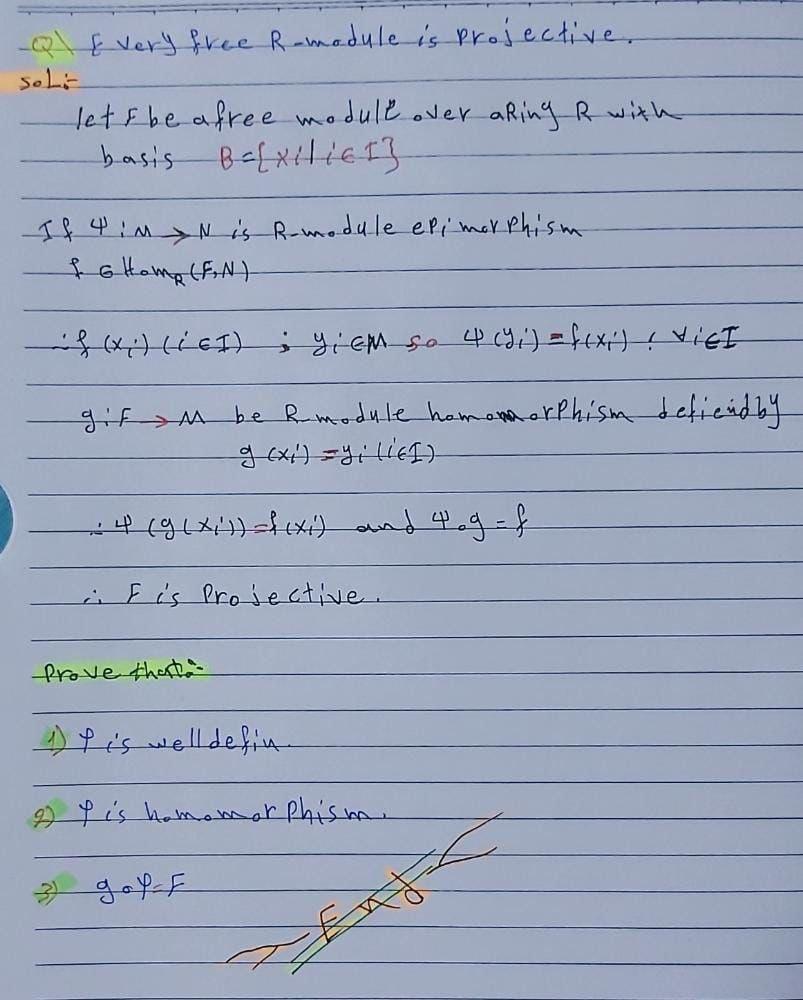 Q) Every free R-module is projective.
sol:-
let F be a free module over a Ring R with
basis B={xi | i∈I}
If Ψ: M → N is R-module epimorphism
f ∈ Hom_R (F,N)
∴ f (xi) (i∈I) ; yi∈M so Ψ(yi) = f(xi) ; ∀i∈I
g: F → M be R-module homomorphism defiendby
g(xi) = yi (i∈I)
∴ Ψ (g(xi)) = f(xi) and Ψ∘g = f
∴ F is Projective.
Prove that:-
1) φ is well defin.
2) φ is homomorphism.
3) g∘φ=F
End